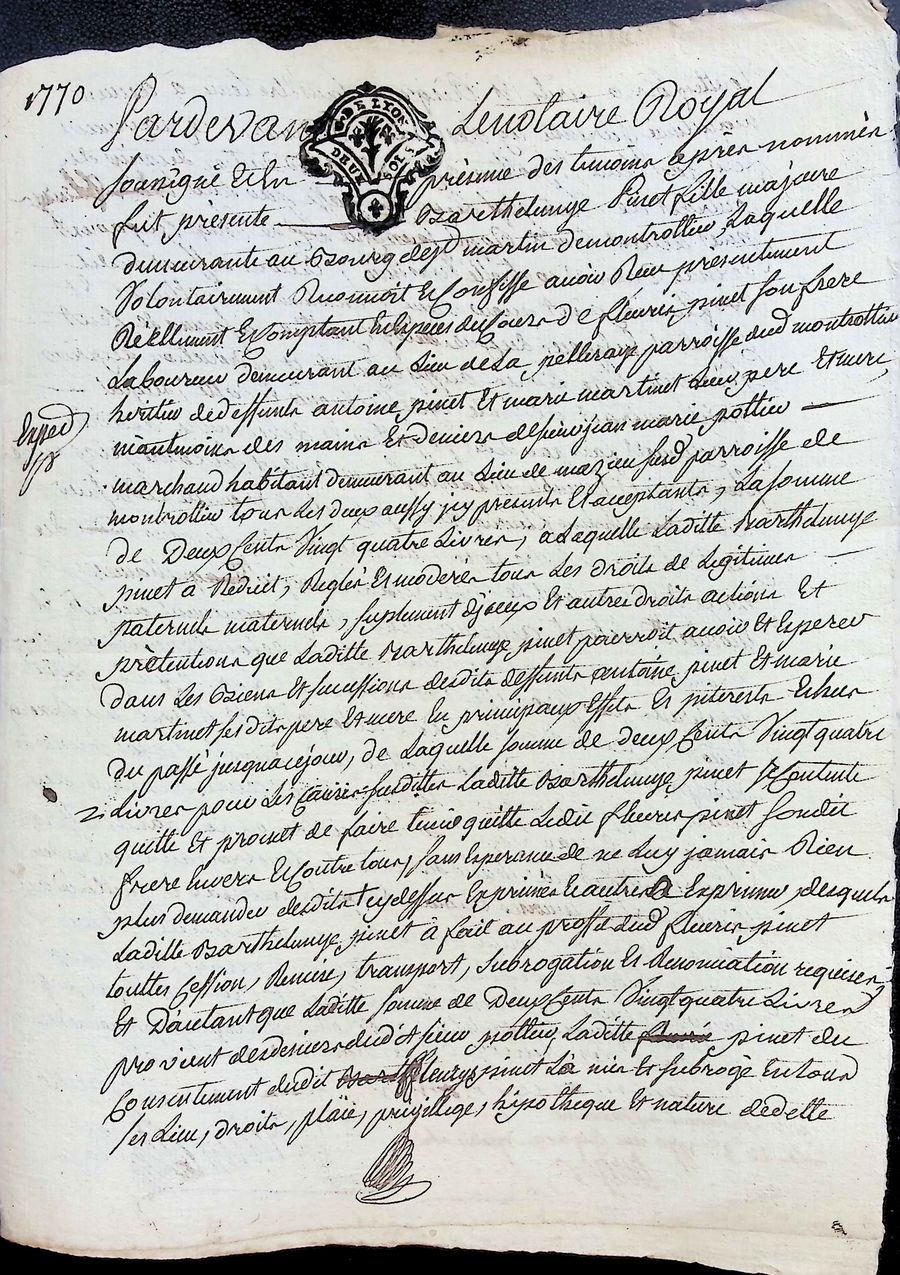 1770
Pardevant Le notaire Royal
DE LYON
DEUX SOLS
soussigné et en présence des temoins cy après nommés
fut présente Barthelemye Pinet fille majeure
demeurante au Bourg de st martin de montrottier, Laquelle
Volontairement Reconnoit et Confesse avoir Reçu présentement
Réellement et Comptant en Especes du Cours de fleurie pinet son frere
Laboureur demeurant au Lieu de La pelleraye parroisse dud montrottier
heritier de deffunts antoine pinet et marie martinet Leur pere et mere
neantmoins des mains et deniers de sieur jean marie pottier
Exped
marchand habitant demeurant au Lieu de mazieu susd parroisse de
montrottier tous Les deux aussy jcy presents et acceptants, La somme
de Deux Cents Vingt quatre Livres, a Laquelle Laditte Barthelemye
pinet à Reduit, Reglés et moderés tous Les droits de Legitimes
paternels maternels, suplement d'jceux et autres droits actions et
prétentions que Laditte Barthelemye pinet pourroit avoir et Esperer
dans Les Biens et successions desdits deffunts antoine pinet et marie
martinet ses dits pere et mere En principaux Effets et jnterests Echus
du passé jusqua ce jour, de Laquelle somme de deux Cents Vingt quatre
Livres pour Les Causes susdittes Laditte Barthelemye pinet se Contente
quitte et promet de faire tenir quitte Ledit fleurie pinet sondit
frere Envers et Contre tous, sans Esperance de ne Luy jamais Rien
plus demander desdits cy dessus Exprimés et autres a Exprimer, desquels
Laditte Barthelemye pinet à fait au proffit dud fleurie pinet
touttes Cession, Remise, transport, subrogation et Renonciation requises,
Et D'autant que Laditte somme de Deux Cents Vingt quatre Livres
provient des deniers dudit sieur pottier, Laditte pinet du
Consentement dudit fleurye pinet L'a mis et subrogé En tous
ses Lieu, droits, place, privillege, hipotheque et nature de dette